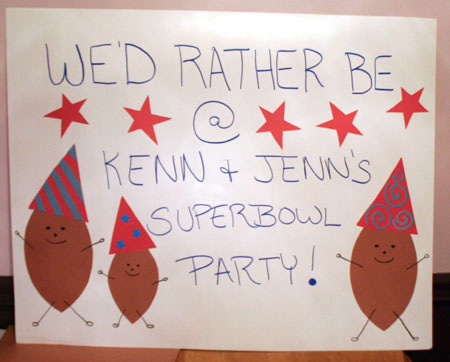 WE'D RATHER BE
@
KENN + JENN'S
SUPERBOWL
PARTY!